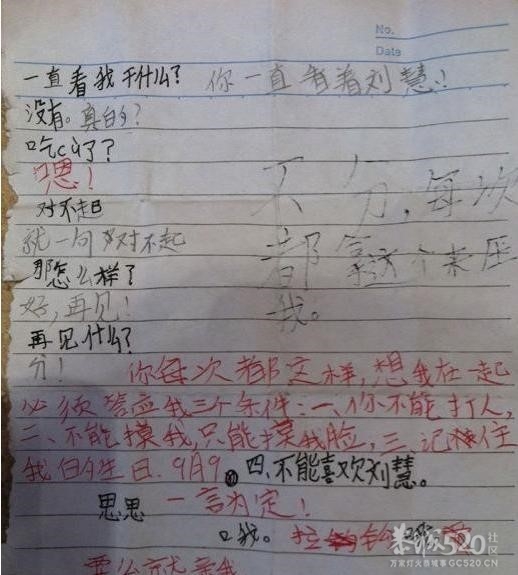 No.
Date
一直看我干什么? 你一直看着刘慧!
没有。真的?
吃cu了?
嗯!
对不起
就一句对不起
那怎么样?
好,再见!
再见什么?
分!
不分,每次
都拿这个来压
我。
你每次都这样,想我在一起
必须答应我三个条件:一、你不能打人,
二、不能摸我,只能摸我脸,三记住
我的生日.9月9 四、不能喜欢刘慧。
思思 一言为定!
口我。拉
要么就亲我
520社区
万家灯火 GC520.CN